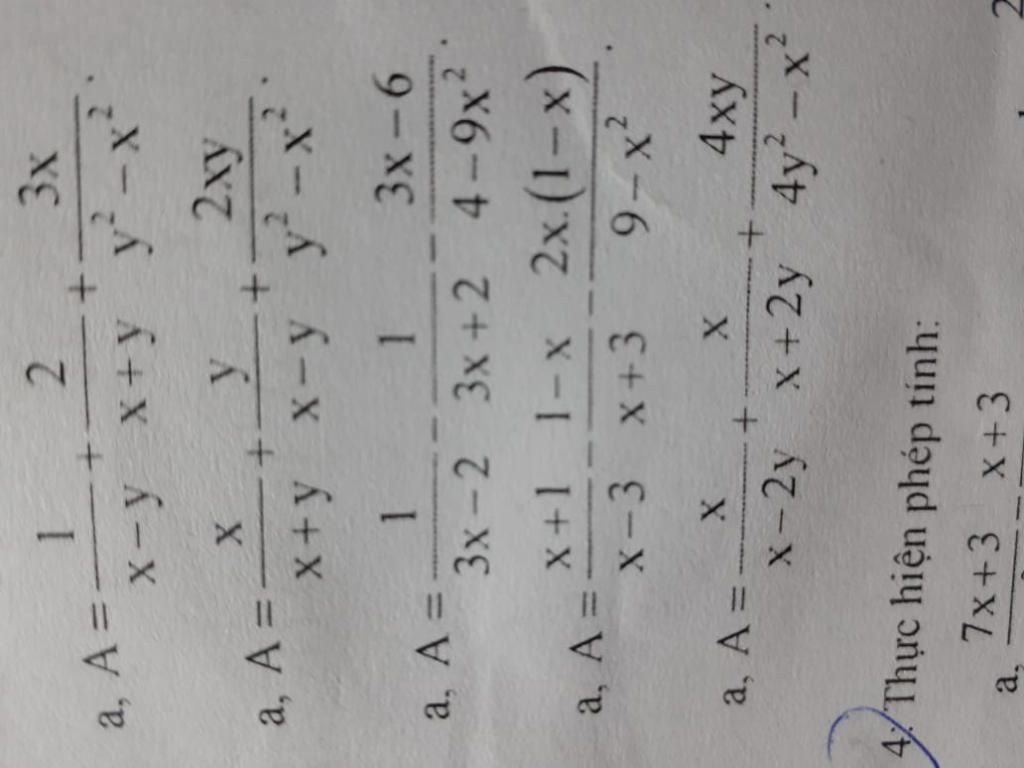 a, A = 1/(x−y) + 2/(x+y) + 3x/(y²−x²).
a, A = x/(x+y) + y/(x−y) + 2xy/(y²−x²).
a, A = 1/(3x−2) − 1/(3x+2) − (3x−6)/(4−9x²).
a, A = (x+1)/(x−3) − (1−x)/(x+3) − 2x.(1−x)/(9−x²).
a, A = x/(x−2y) + x/(x+2y) + 4xy/(4y²−x²).
4: Thực hiện phép tính:
a, 7x+3 − x+3